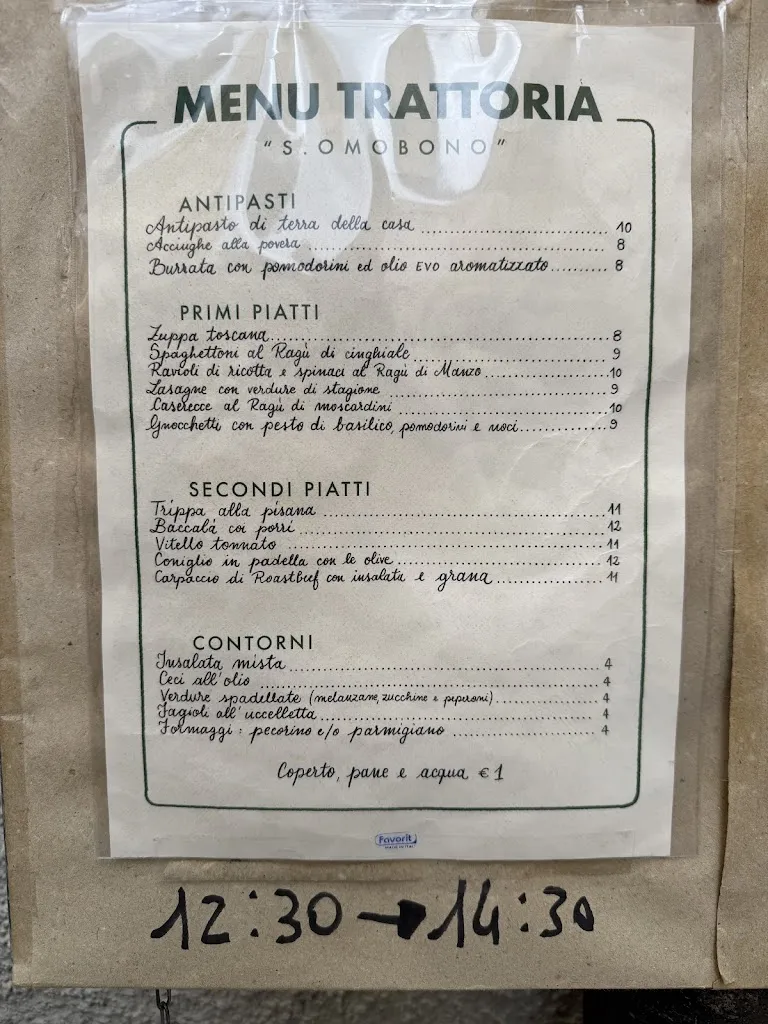 MENU TRATTORIA
"S.OMOBONO"
ANTIPASTI
Antipasto di terra della casa 10
Acciughe alla povera 8
Burrata con pomodorini ed olio EVO aromatizzato 8
PRIMI PIATTI
Zuppa toscana 8
Spaghettoni al Ragù di cinghiale 9
Ravioli di ricotta e spinaci al Ragù di Manzo 10
Lasagne con verdure di stagione 9
Caserecce al Ragù di moscardini 10
Gnocchetti con pesto di basilico, pomodorini e noci 9
SECONDI PIATTI
Trippa alla pisana 11
Baccalà coi porri 12
Vitello tonnato 11
Coniglio in padella con le olive 12
Carpaccio di Roastbeef con insalata e grana 11
CONTORNI
Insalata mista 4
Ceci all'olio 4
Verdure spadellate (melanzane, zucchine e peperoni) 4
Fagioli all'uccelletta 4
Formaggi: pecorino e/o parmigiano 4
Coperto, pane e acqua € 1
Favorit
12:30 → 14:30